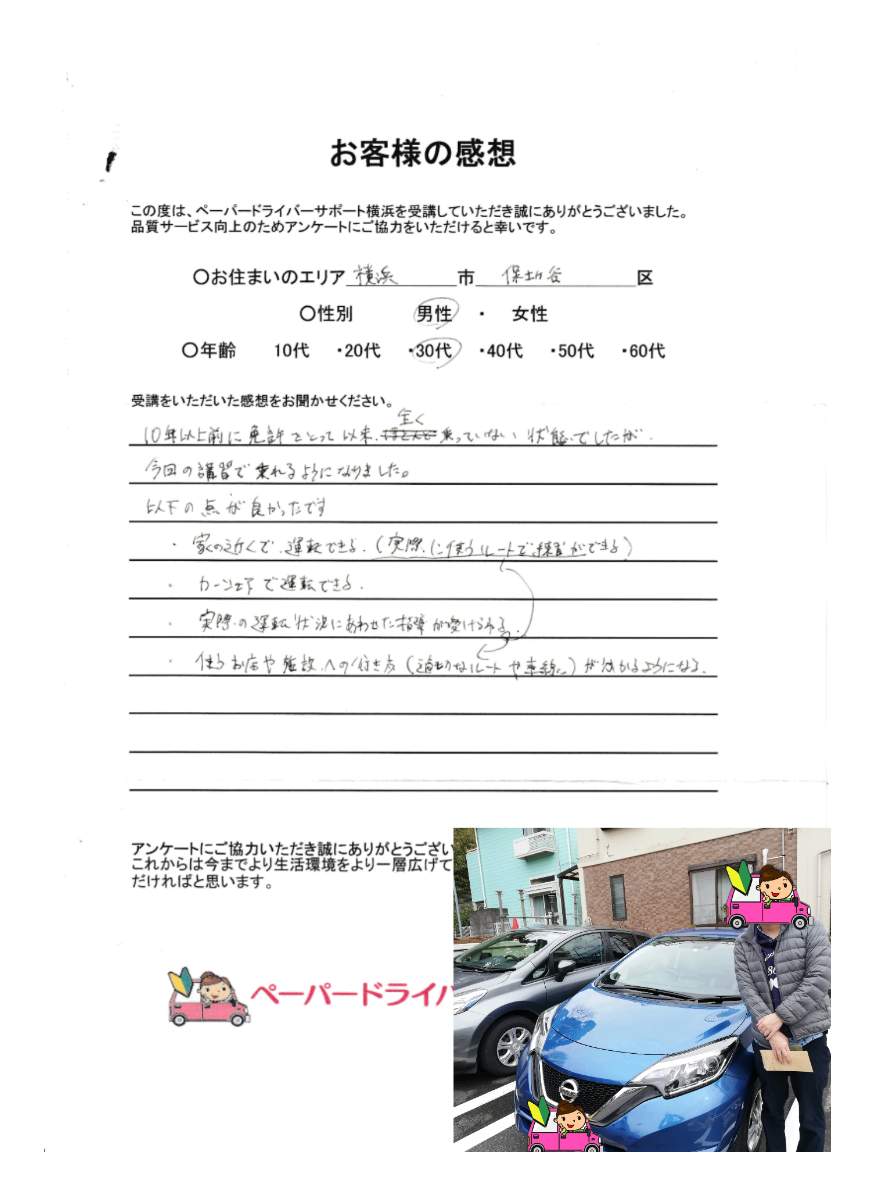 お客様の感想
この度は、ペーパードライバーサポート横浜を受講していただき誠にありがとうございました。
品質サービス向上のためアンケートにご協力をいただけると幸いです。
〇お住まいのエリア 横浜 市 保土ヶ谷 区
〇性別 男性 ・ 女性
〇年齢 10代 ・20代 ・30代 ・40代 ・50代 ・60代
受講をいただいた感想をお聞かせください。
10年以上前に免許をとって以来、全く乗っていない状態でしたが、
今回の講習で乗れるようになりました。
以下の点が良かったです
・家の近くで運転できる。(実際に使うルートで練習ができる)
・カーシェアで運転できる。
・実際の運転状況にあわせた指導が受けられる。
・使うお店や施設への行き方(適切なルートや車線)が分かるようになる。
アンケートにご協力いただき誠にありがとうござい
これからは今までより生活環境をより一層広げて
だければと思います。
ペーパードライバ